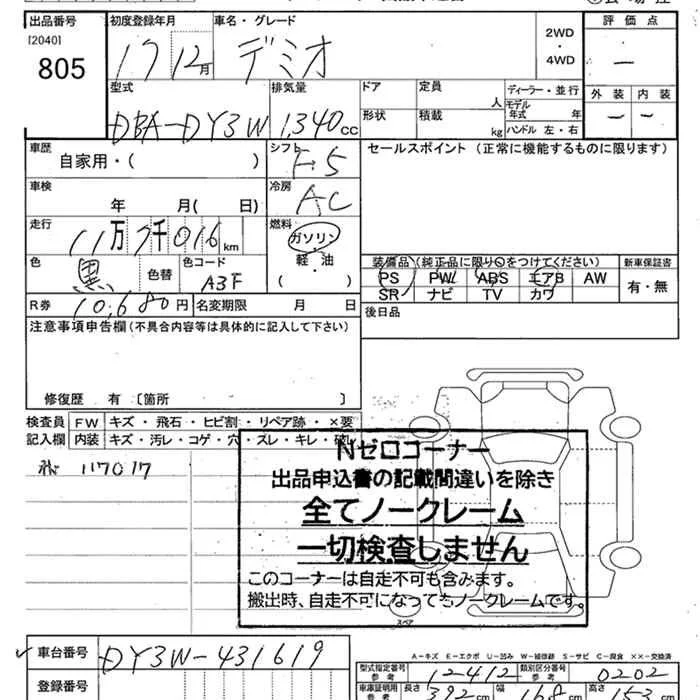 出品番号 初度登録年月 車名・グレード 2WD・4WD 評価点
[2040]
805 17 12月 デミオ ー
型式 排気量 ドア 定員 人 ディーラー・並行 外装 内装
DBA-DY3W 1,340cc 形状 積載 kg モデル年式 年 ー ー
ハンドル 左・右
車歴 自家用・( ) シフト F5 セールスポイント (正常に機能するものに限ります)
車検 年 月( 日) 冷房 AC
走行 11万7千016km 燃料 ガソリン 軽・油 ( )
色 黒 色替 色コード A3F
装備品(純正品に限り○をつけてください) 新車保証書
PS PW ABS エアB AW 有・無
SR ナビ TV カワ
R券 10,680円 名変期限 月 日 後日品
注意事項申告欄(不具合内容等は具体的に記入して下さい)
修復歴 有 〔箇所 〕
検査員 FW キズ・飛石・ヒビ割・リペア跡・×要
記入欄 内装 キズ・汚レ・コゲ・穴・スレ・キレ・破レ
117017
Nゼロコーナー
出品申込書の記載間違いを除き
全てノークレーム
一切検査しません
このコーナーは自走不可も含みます。
搬出時、自走不可になってもノークレームです。
スペア
車台番号 DY3W-431619
A-キズ E-エクボ U-凹み W-補修跡 S-サビ C-腐食 ××-交換済
登録番号 型式指定番号 参考 12412 類別区分番号 参考 0202
車庫証明用 参考 長さ 392cm 幅 168cm 高さ 153cm